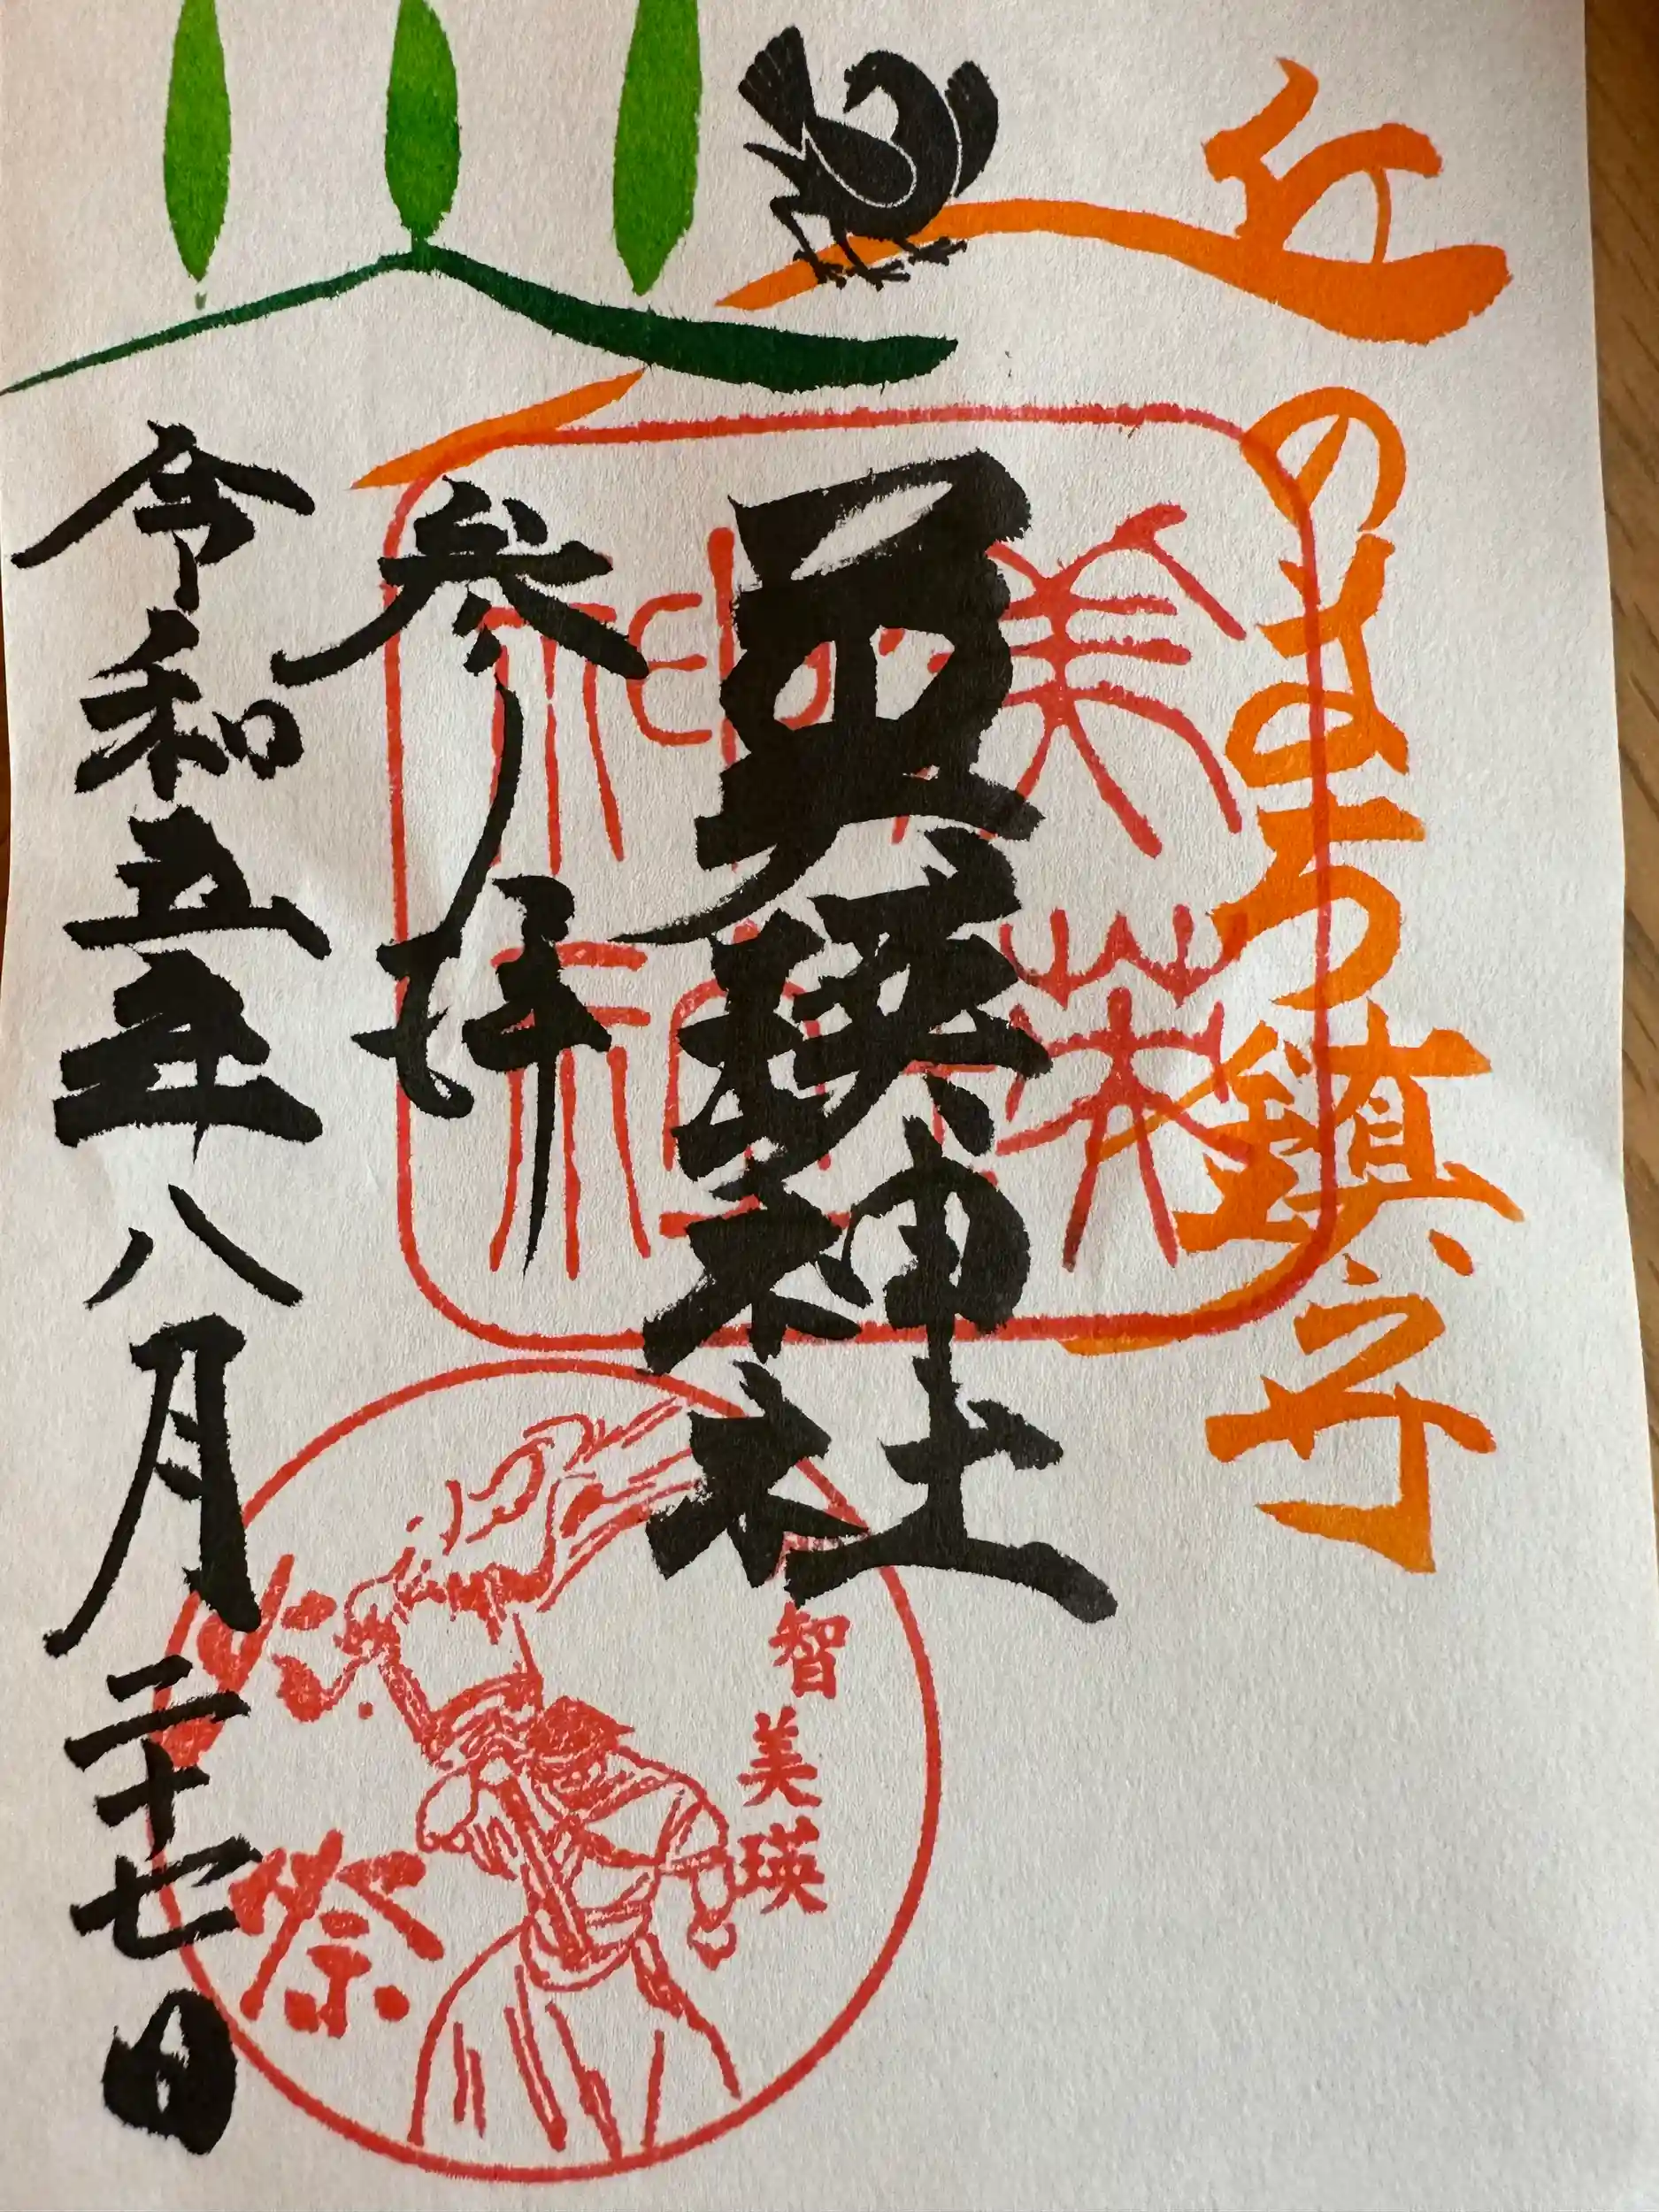 丘のまち鎮守
美瑛神社
美瑛神社
参拝
令和五年八月二十七日
智美瑛
火祭